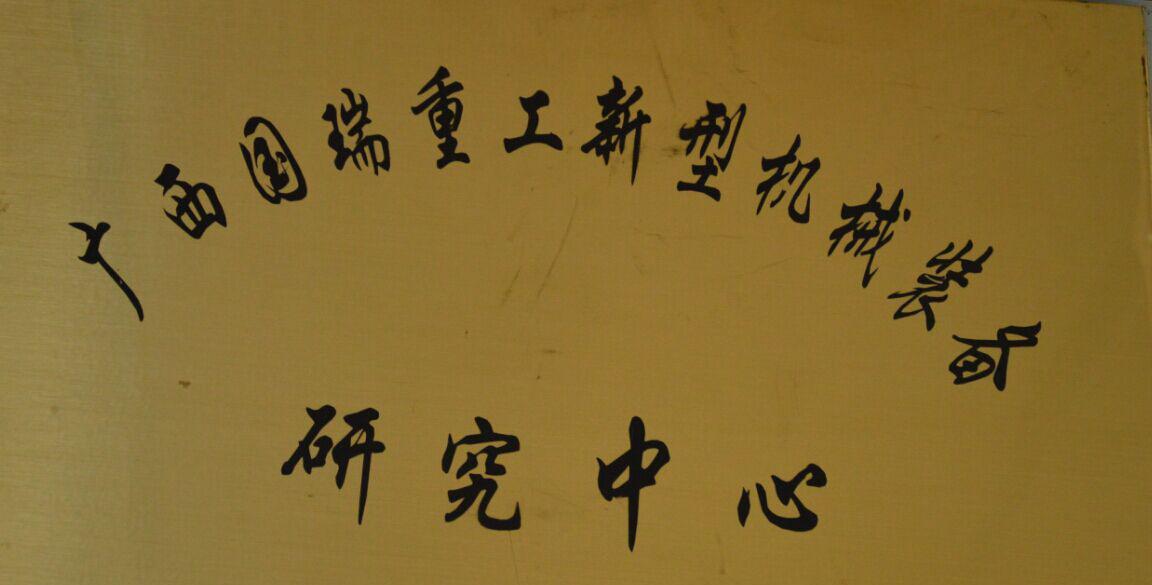 广西国瑞重工新型机械装备
研究中心